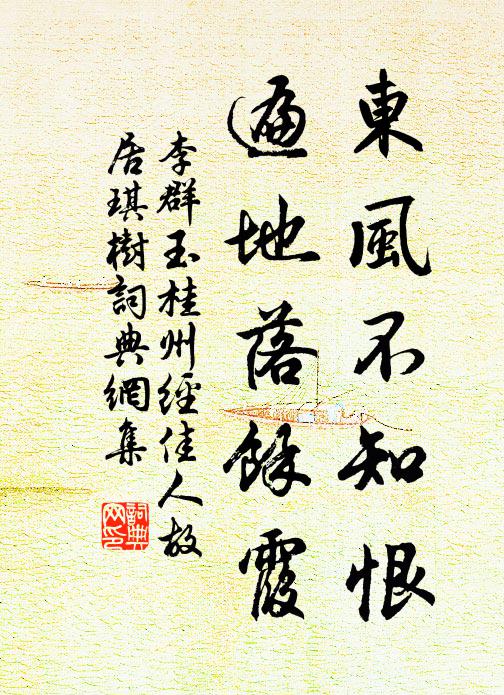 東風不知恨
遍地落餘霞
李群玉桂州經佳人故
居琪樹詞典網集
詞典
网印